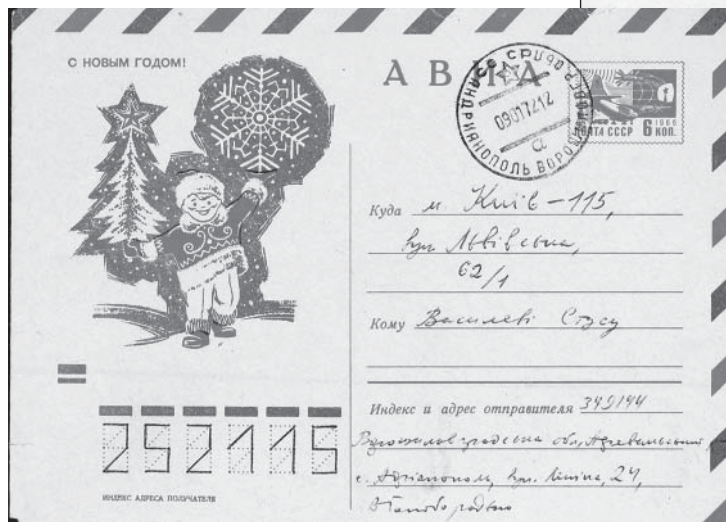 С НОВЫМ ГОДОМ!
АВИА
АНДРИАНОПОЛЬ ВОРОШИЛОВГР ОБЛ
СССР
090172 12
а
ПОЧТА СССР 6 КОП.
1966
Куда м. Київ – 115,
вул Львівська,
62/1
Кому Василеві Стусу
Индекс и адрес отправителя 349144
Ворошиловградська обл,
с. Адріанополь, вул. Леніна, 24,
252115
ИНДЕКС АДРЕСА ПОЛУЧАТЕЛЯ